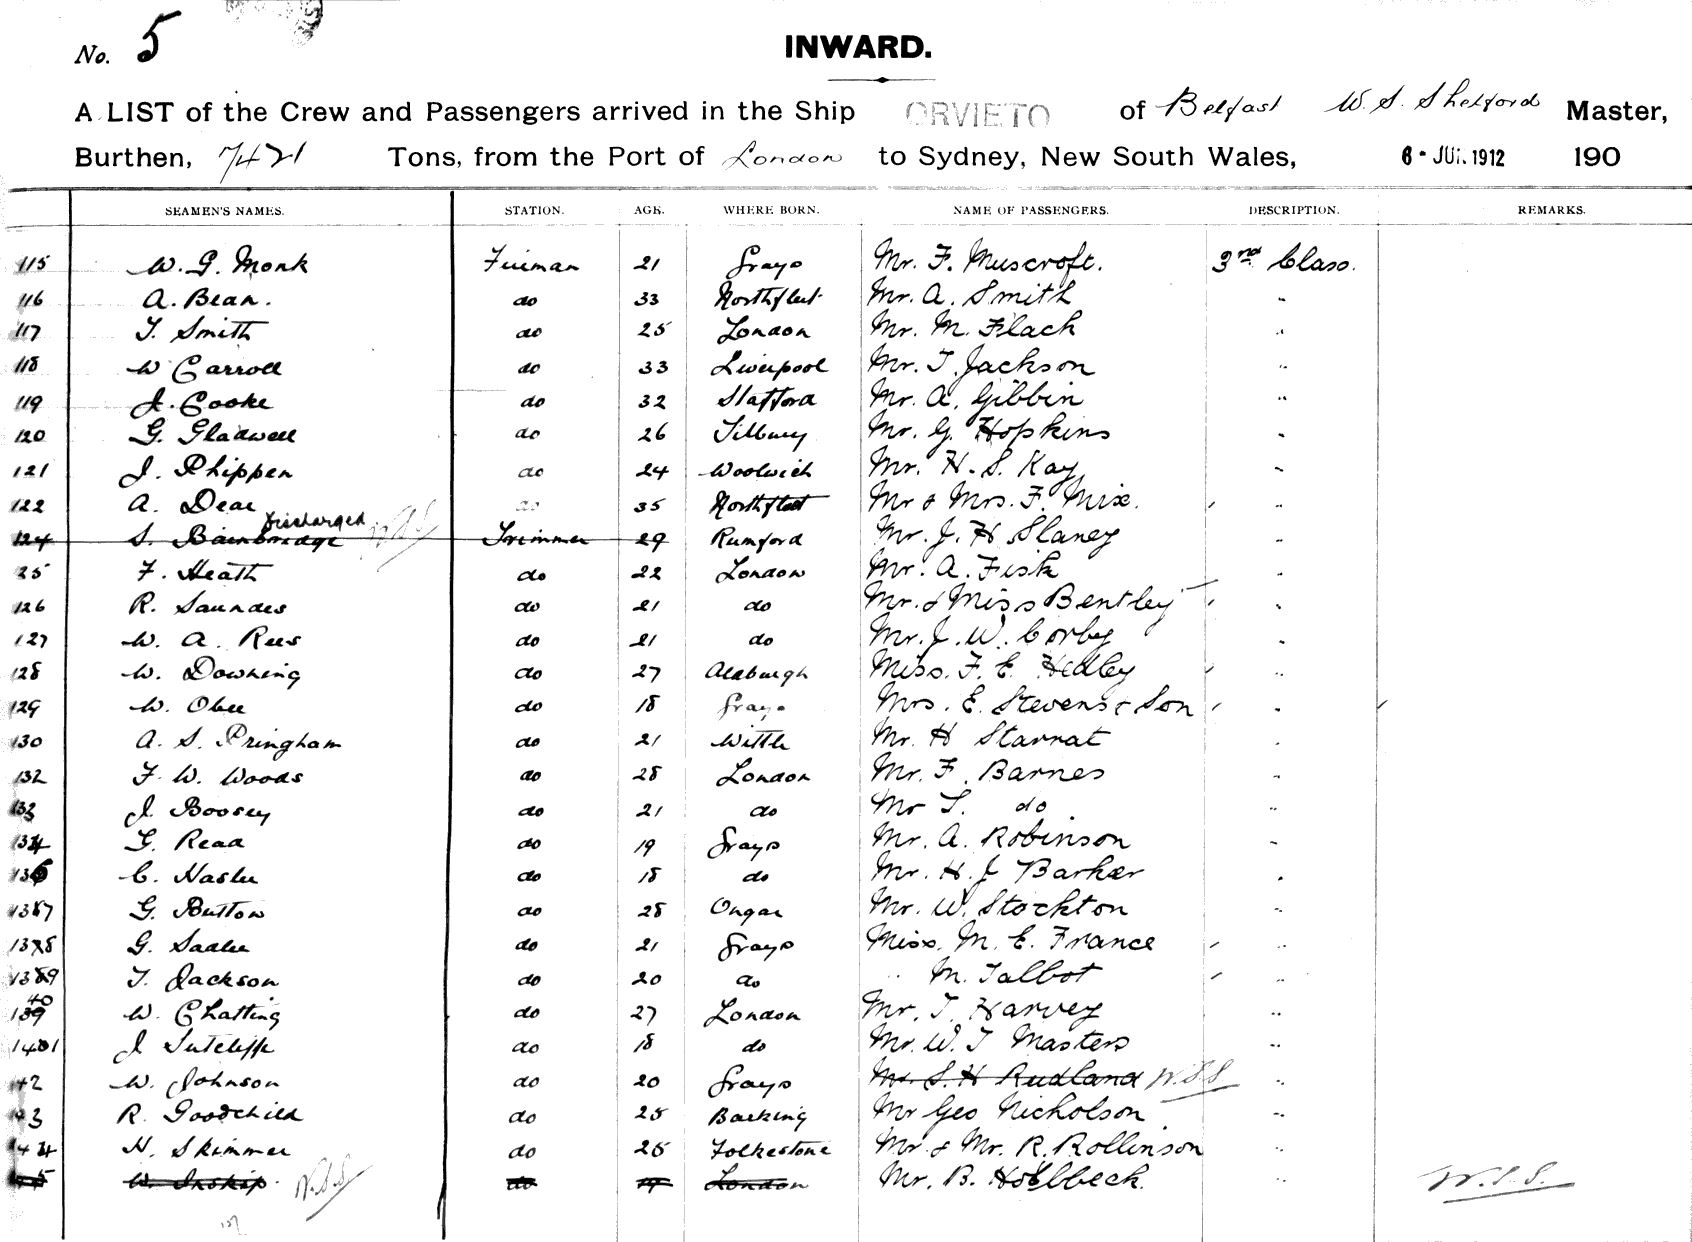 No. 5
INWARD.
A LIST of the Crew and Passengers arrived in the Ship ORVIETO of Belfast W. S. Shelford Master,
Burthen, 7421 Tons, from the Port of London to Sydney, New South Wales, 6 - JUL 1912 190
SEAMEN'S NAMES. STATION. AGE. WHERE BORN. NAME OF PASSENGERS. DESCRIPTION. REMARKS.
115 W. G. Monk Fireman 21 Grays Mr. F. Muscroft. 3rd Class.
116 A. Bean. do 33 Northfleet Mr. A. Smith "
117 T. Smith do 25 London Mr. M. Flack "
118 W Carroll do 33 Liverpool Mr. T. Jackson "
119 J. Cooke do 32 Stafford Mr. A. Gibbin "
120 G. Gladwell do 26 Tilbury Mr. G. Hopkins "
121 J. Phippen do 24 Woolwich Mr. H. S. Kay "
122 A. Dear do 35 Northfleet Mr & Mrs. F. Mix. "
Discharged W.S.S
124 S. Bainbridge Trimmer 29 Rumford Mr. J. H Slaney "
25 F. Heath do 22 London Mr. A. Fisk "
126 R. Saunders do 21 do Mr. & Miss Bentley "
127 W. A. Rees do 21 do Mr. J. W. Corby "
128 W. Downing do 27 Aldburgh Miss. F. E. Hedley "
129 W. Obee do 18 Grays Mrs. E. Stevens & Son "
130 A. S. Pringham do 21 Wittle Mr. H Starrat "
132 F. W. Woods do 28 London Mr. F. Barnes "
133 J. Boosey do 21 do Mr T. do "
134 G. Read do 19 Grays Mr. A. Robinson "
136 C. Haslee do 18 do Mr. H. J Barker "
137 G. Button do 28 Ongar Mr. W. Stockton "
138 G. Sadler do 21 Grays Miss. M. E. France "
139 T. Jackson do 20 do " M. Talbot "
40 W. Chatting do 27 London Mr. T. Harvey "
141 J Sutcliffe do 18 do Mr. W. T Masters "
142 W. Johnson do 20 Grays Mr. S. H Rudland W.S.S "
143 R. Goodchild do 25 Barking Mr Geo Nicholson "
144 H. Skimmer do 25 Folkestone Mr. & Mr. R. Rollinson "
W. Inskip. W.S.S do 19 London Mr. B. Holbeck. " W.S.S.